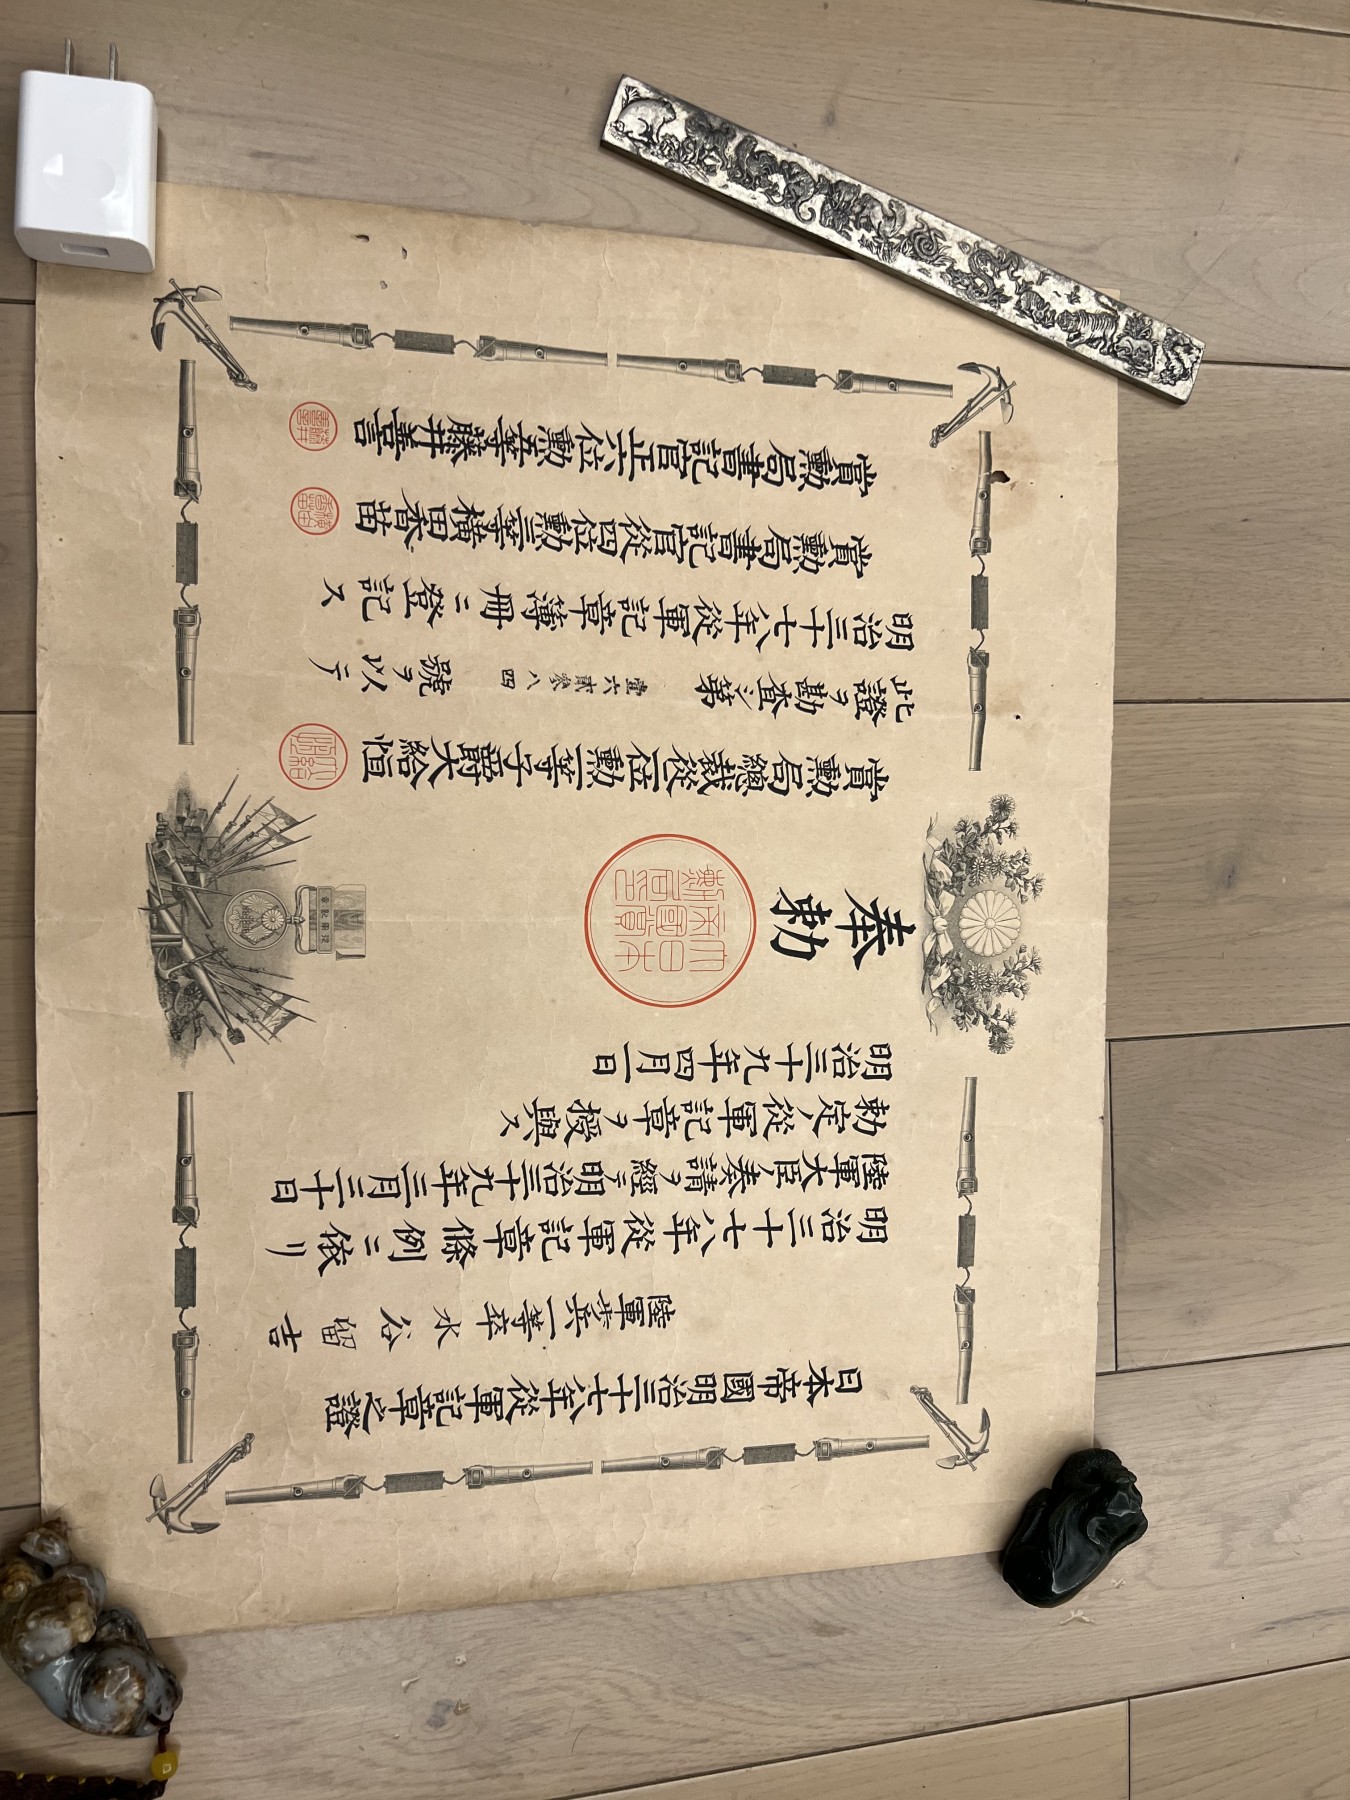 日本帝國明治三十七八年從軍記章之證
陸軍歩兵一等卒水谷留吉
明治三十七八年從軍記章條例ニ依リ
陸軍大臣ノ奏請ヲ經テ明治三十九年三月三十日
勅定ノ從軍記章ヲ授與ス
明治三十九年四月一日
奉勅
大日本
帝國賞
勳局印
章記軍從
賞勳局總裁從二位勳一等子爵大給恒
此證ヲ勘査シ第壹六貳參八四號ヲ以テ
明治三十七八年從軍記章簿冊ニ登記ス
賞勳局書記官從四位勳三等横田香苗
賞勳局書記官正六位勳五等藤井善言